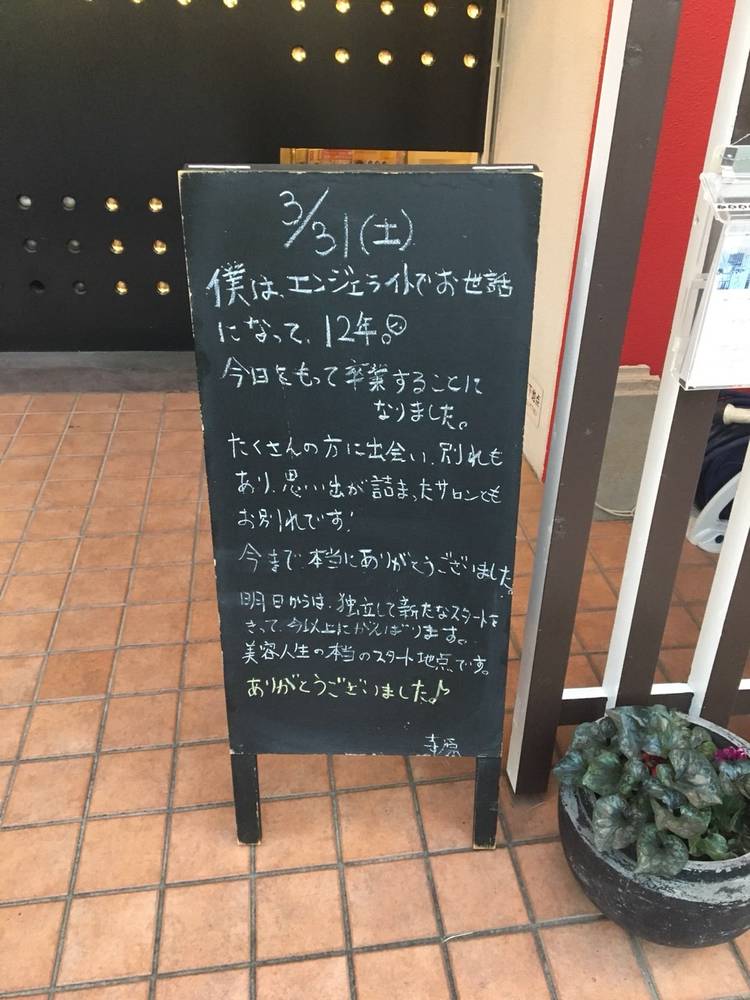 3/31(土)
僕は、エンジェライトでお世話
になって、12年。
今日をもって卒業することに
なりました。
たくさんの方に出会い、別れも
あり、思い出が詰まったサロンでも
お別れです!
今まで、本当にありがとうございました。
明日からは、独立して新たなスタートを
きって、今以上にがんばります。
美容人生の本当のスタート地点です。
ありがとうございました♪
寺源